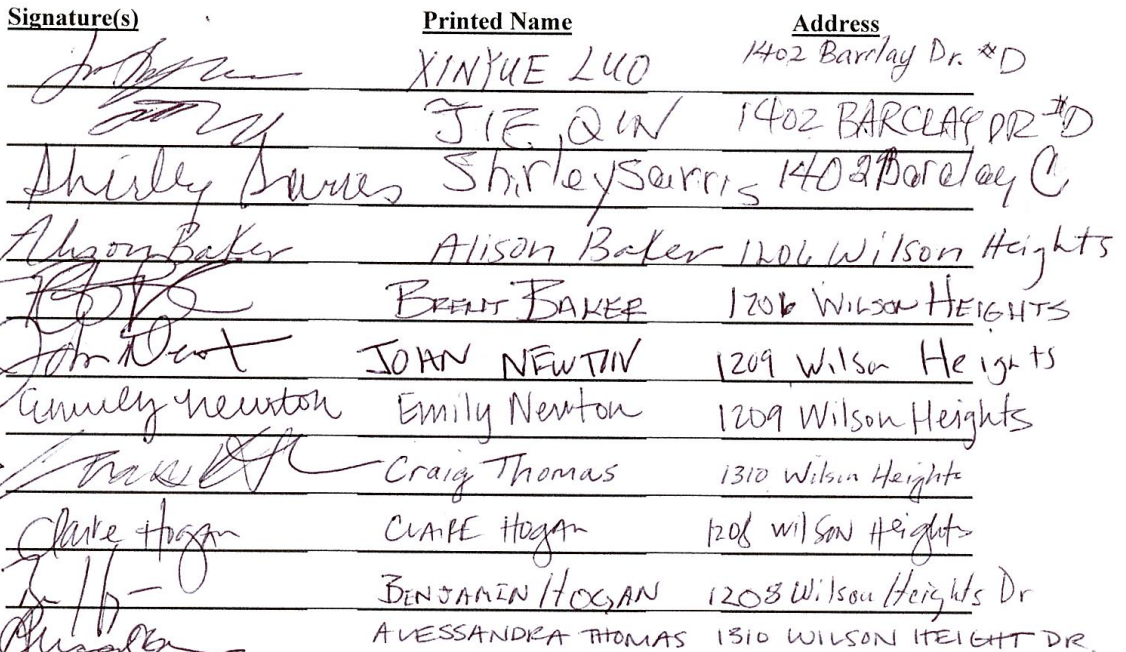 Signature(s) Printed Name Address
XINYUE LUO 1402 Barclay Dr. #D
JIE QIN 1402 BARCLAY DR #D
Shirley Sarris Shirley Sarris 1402 Barclay C
Alison Baker Alison Baker 1206 Wilson Heights
BRENT BAKER 1206 WILSON HEIGHTS
John Newt JOHN NEWTON 1209 Wilson Heights
Emily Newton Emily Newton 1209 Wilson Heights
Craig Thomas 1310 Wilson Heights
Claire Hogan CLAIRE HOGAN 1208 Wilson Heights
BENJAMIN HOGAN 1208 Wilson Heights Dr
ALESSANDRA THOMAS 1310 WILSON HEIGHT DR.